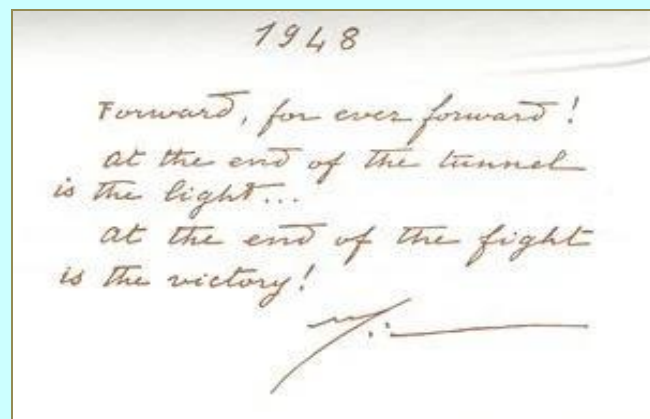 1948
Forward, for ever forward!
at the end of the tunnel
is the light...
at the end of the fight
is the victory!